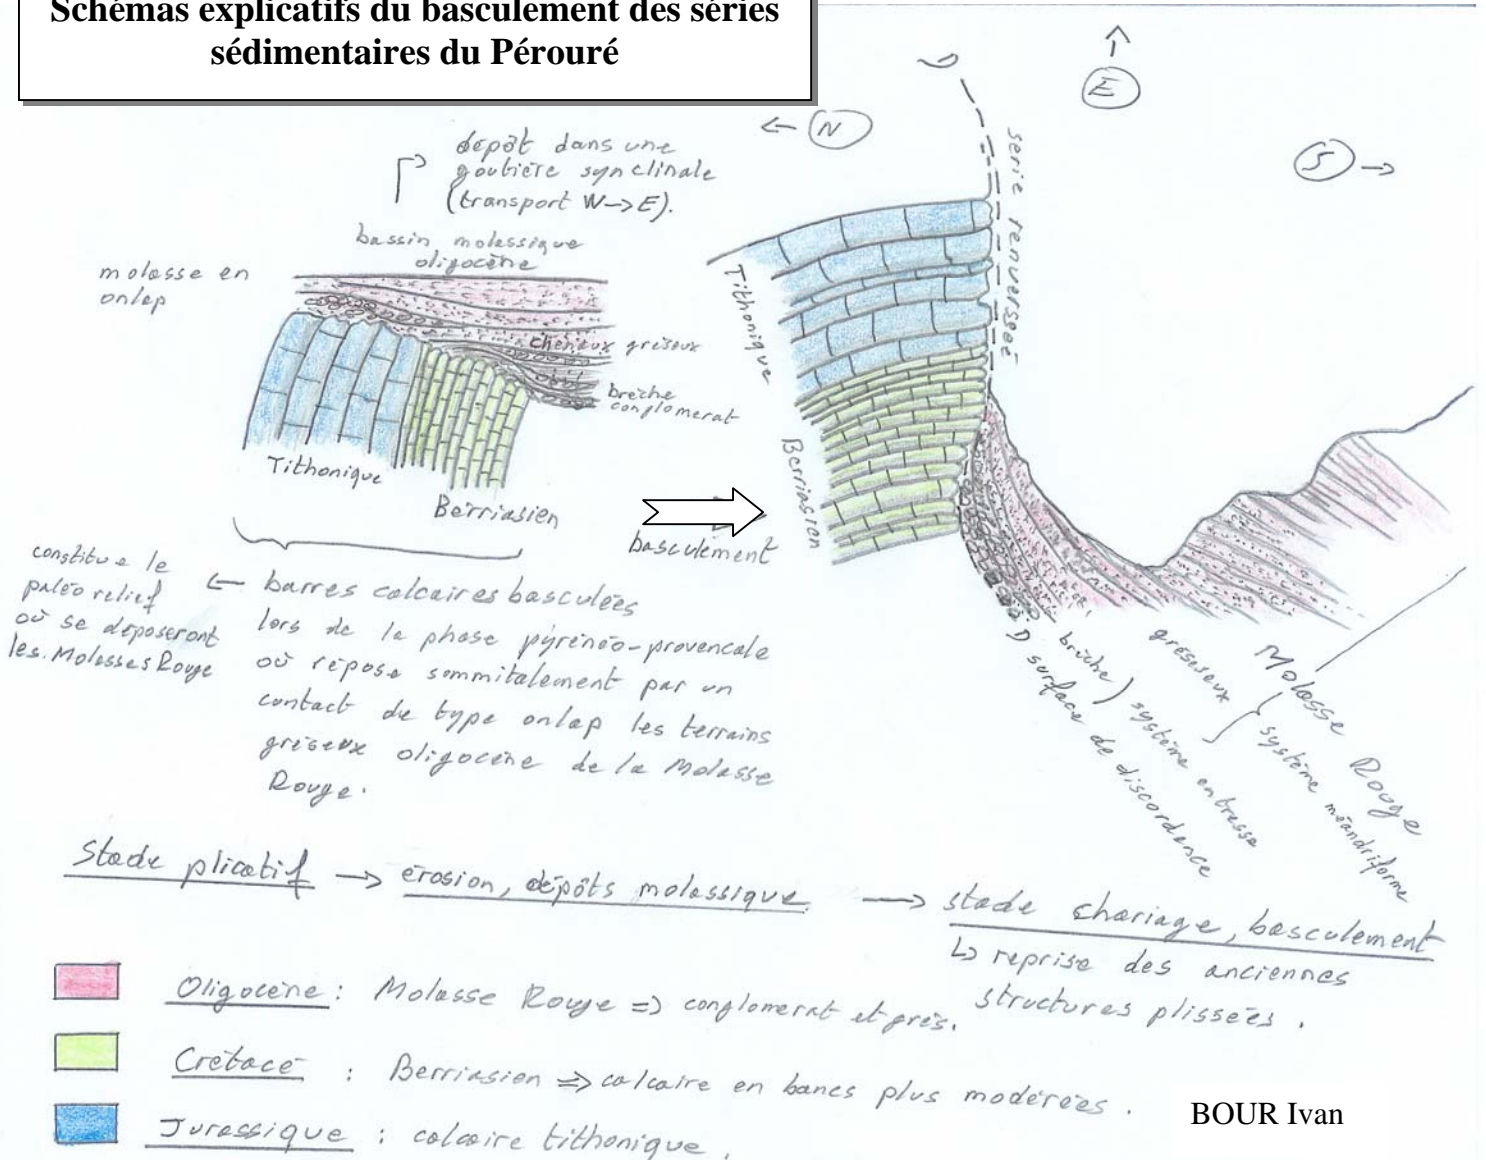 Schémas explicatifs du basculement des séries
sédimentaires du Pérouré
E
N
S
dépôt dans une
goutière synclinale
(transport W->E).
bassin molassique
oligocène
molasse en
onlap
chenaux gréseux
brèche
conglomerat
Tithonique
Berriasien
basculement
constitue le
paléorelief
où se déposeront
les Molasses Rouge
barres calcaires basculées
lors de la phase pyrénéo-provencale
où repose sommitalement par un
contact de type onlap les terrains
gréseux oligocène de la Molasse
Rouge.
série renversée
Tithonique
Berriasien
surface de discordence
brèche } système en tresse
gréseux } système méandriforme
Molasse Rouge
Stade plicatif -> érosion, dépôts molassique -> stade chariage, basculement
↳ reprise des anciennes
structures plissées.
Oligocène : Molasse Rouge => conglomerat et grès.
Crétacé : Berriasien => calcaire en bancs plus modérées.
Jurassique : calcaire tithonique.
BOUR Ivan